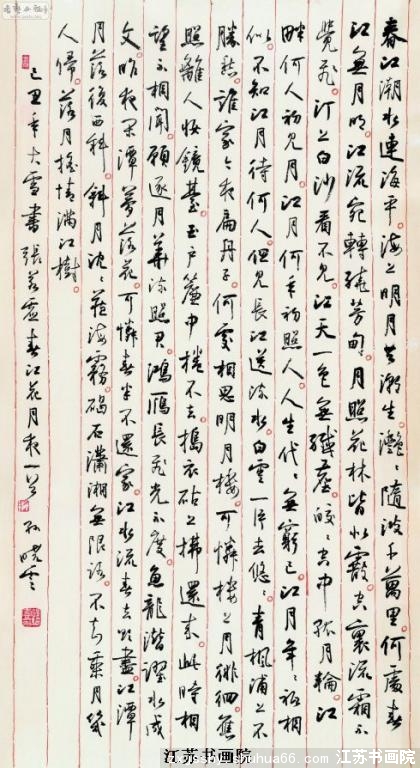 春江潮水連海平海上明月共潮生灧〻隨波千萬里何處春
江無月明江流宛轉繞芳甸月照花林皆似霰空裏流霜不
覺飛汀上白沙看不見江天一色無纖塵皎〻空中孤月輪江
畔何人初見月江月何年初照人人生代〻無窮已江月年〻祗相
似不知江月待何人但見長江送流水白雲一片去悠〻青楓浦上不
勝愁誰家今夜扁舟子何處相思明月樓可憐樓上月徘徊應
照離人妝鏡臺玉戶簾中捲不去搗衣砧上拂還來此時相
望不相聞願逐月華流照君鴻雁長飛光不度魚龍潛躍水成
文昨夜閑潭夢落花可憐春半不還家江水流春去欲盡江潭
月落復西斜斜月沉〻藏海霧碣石瀟湘無限路不知乘月幾
人歸落月搖情滿江樹
己丑年大雪書張若虛春江花月夜一首 孫曉雲
江苏书画院
江苏书画院